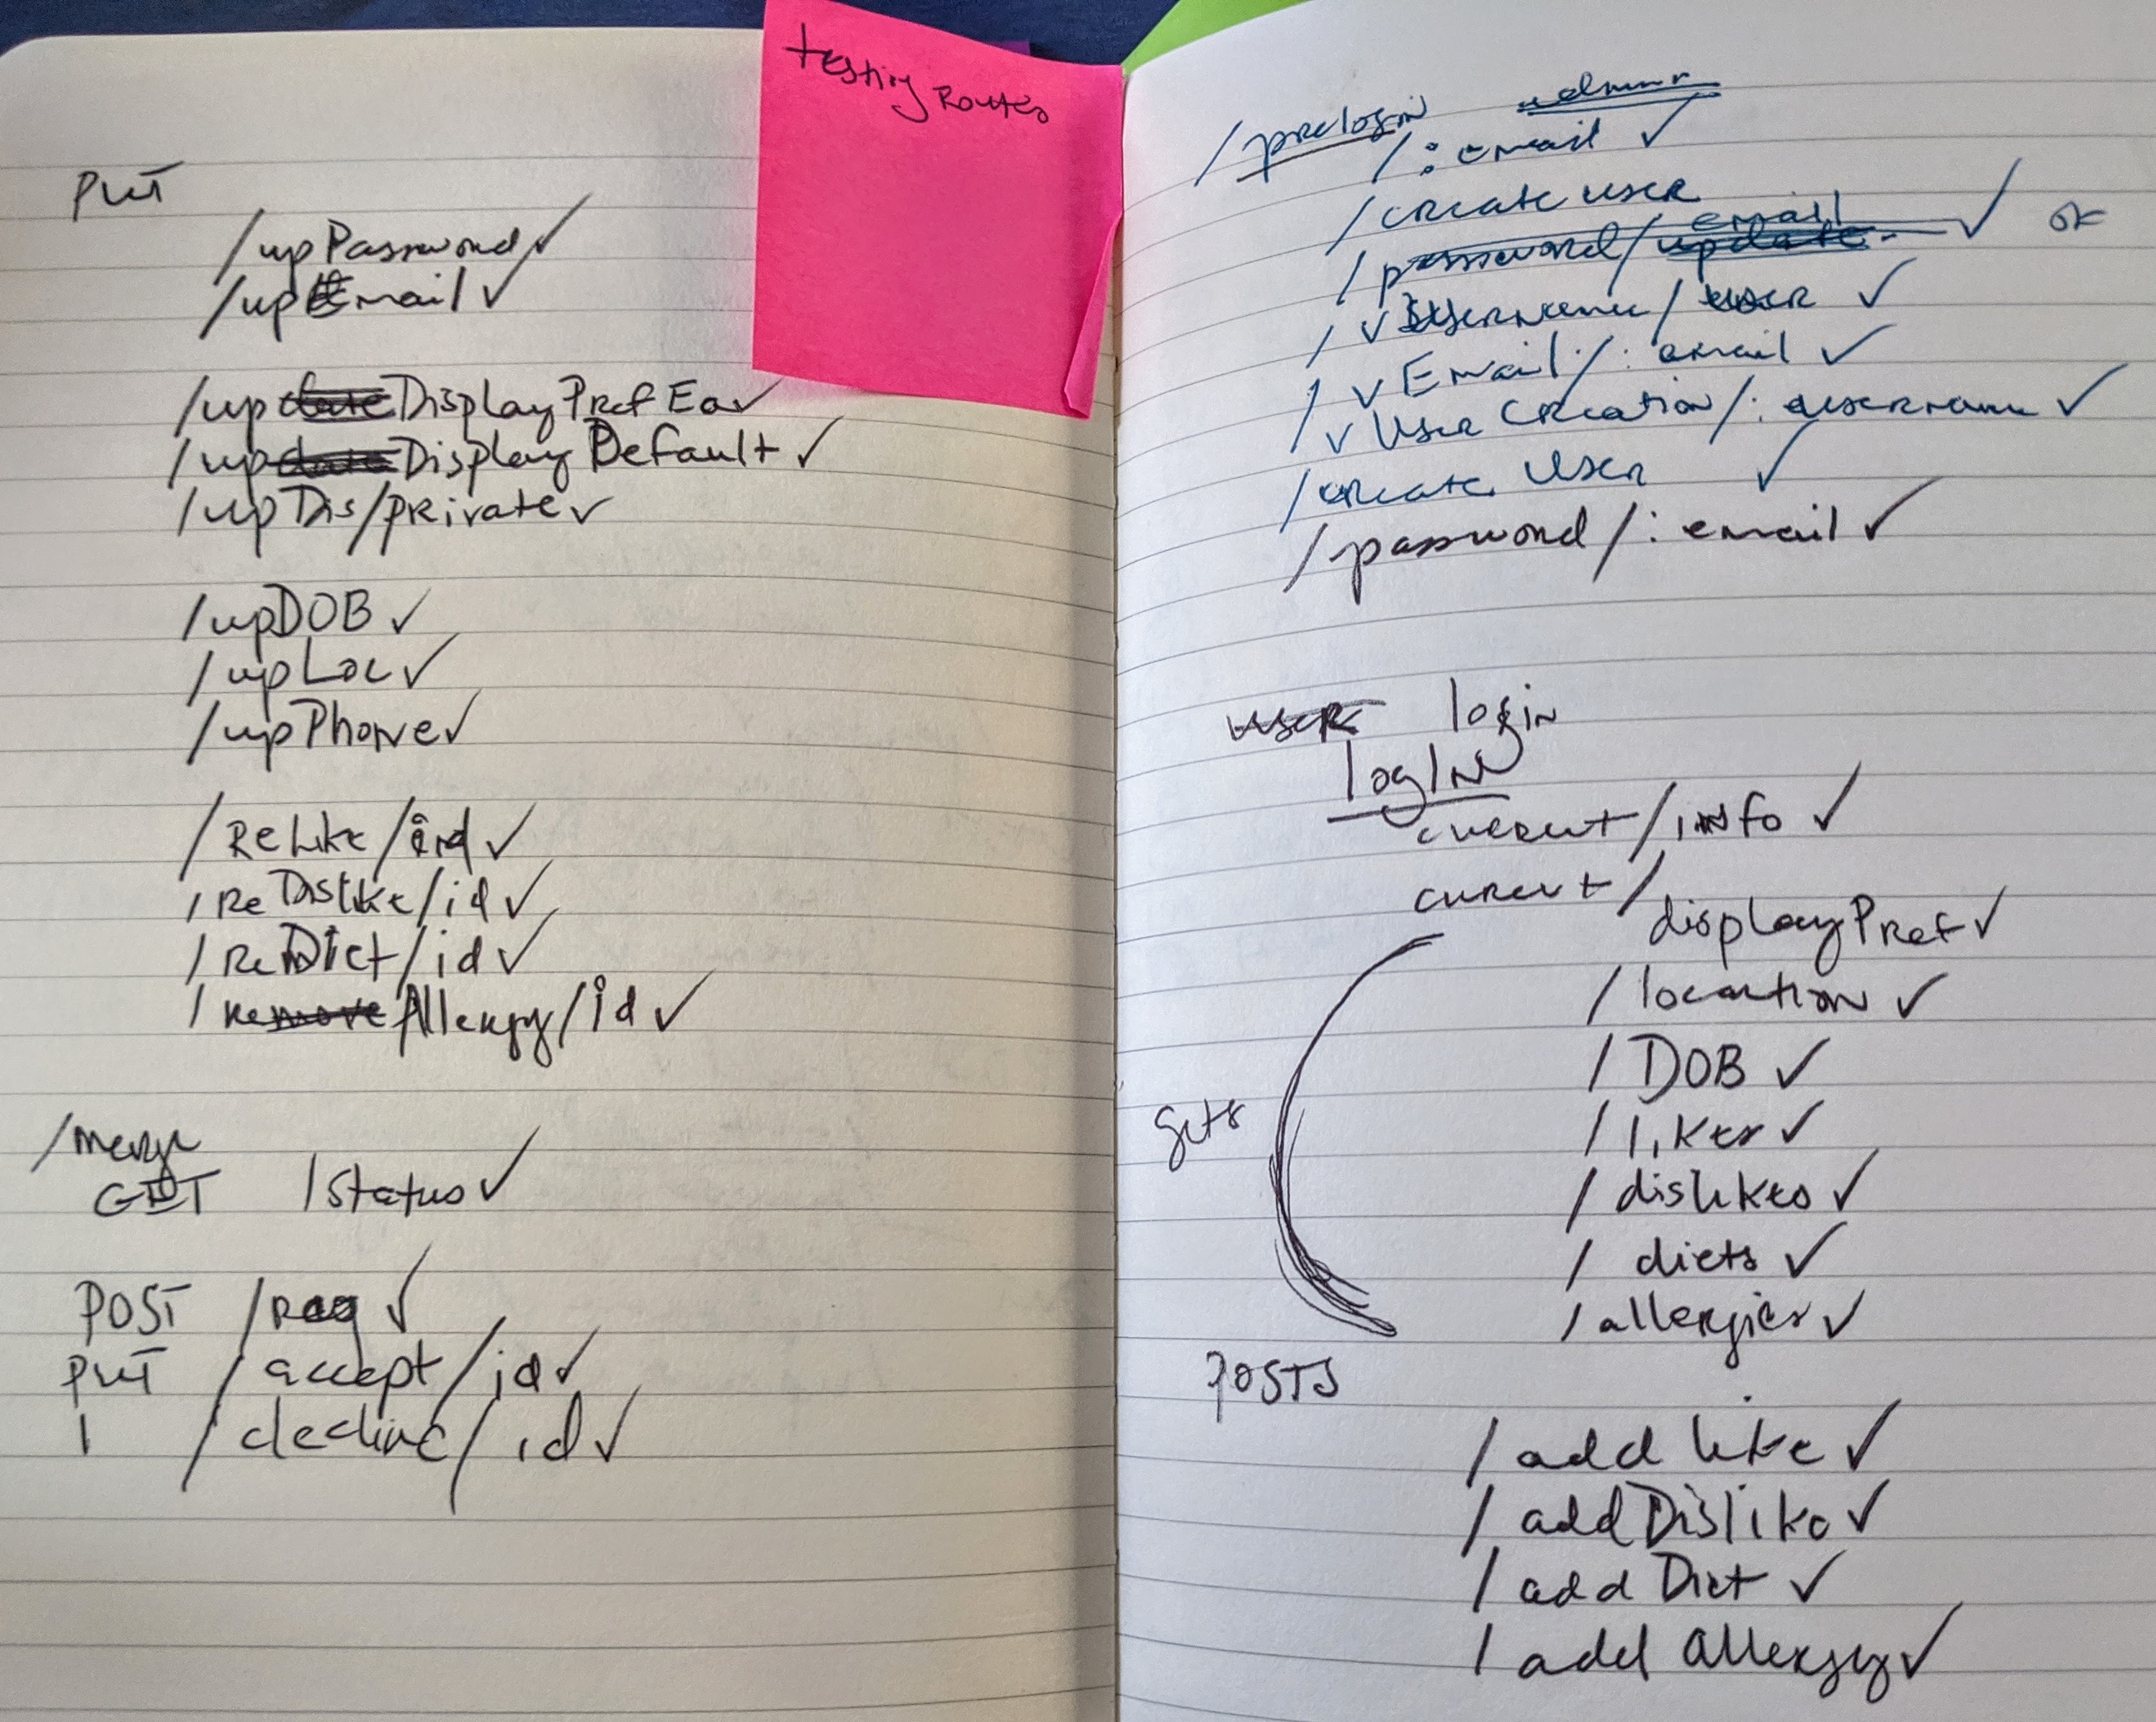 testing Routes
PUT
/upPassword ✓
/upEmail ✓
/up DisplayPref Ea✓
/up Display Default ✓
/upDis/private ✓
/upDOB ✓
/upLoc ✓
/upPhone ✓
/ReLike/id ✓
/ReDislike/id ✓
/ReDiet/id ✓
/Re Allergy/id ✓
/merge
GET /status ✓
POST /req ✓
PUT /accept/id ✓
| /decline/id ✓
/prelogin admin
/:email ✓
/create user
/password/email ✓ ok
/vUsername/user ✓
/vEmail/:email ✓
/vUserCreation/:username ✓
/create User ✓
/password/:email ✓
user login
logIN
current/info ✓
current/
displayPref ✓
/location ✓
/DOB ✓
Gets
/likes ✓
/dislikes ✓
/diets ✓
/allergies ✓
POSTS
/add like ✓
/addDislike ✓
/add Diet ✓
/add Allergy ✓